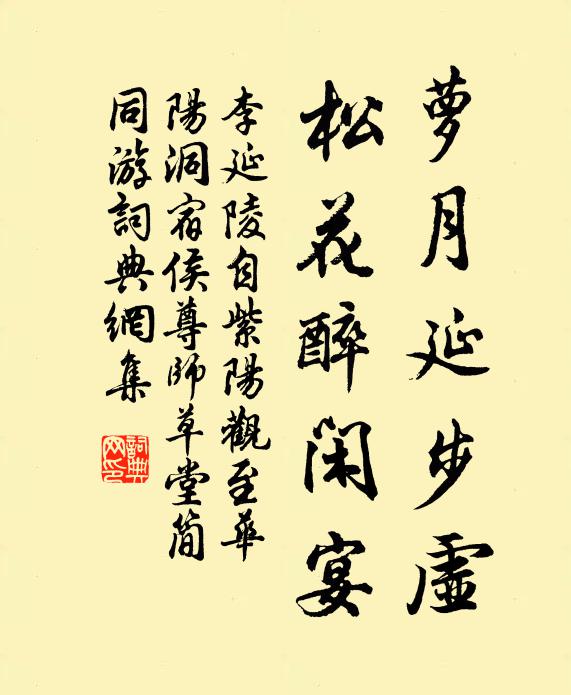 萝月延步虛
松花醉閑宴
李延陵自紫陽觀至華
陽洞宿侯尊師草堂簡
同游詞典網集
詞典
网印